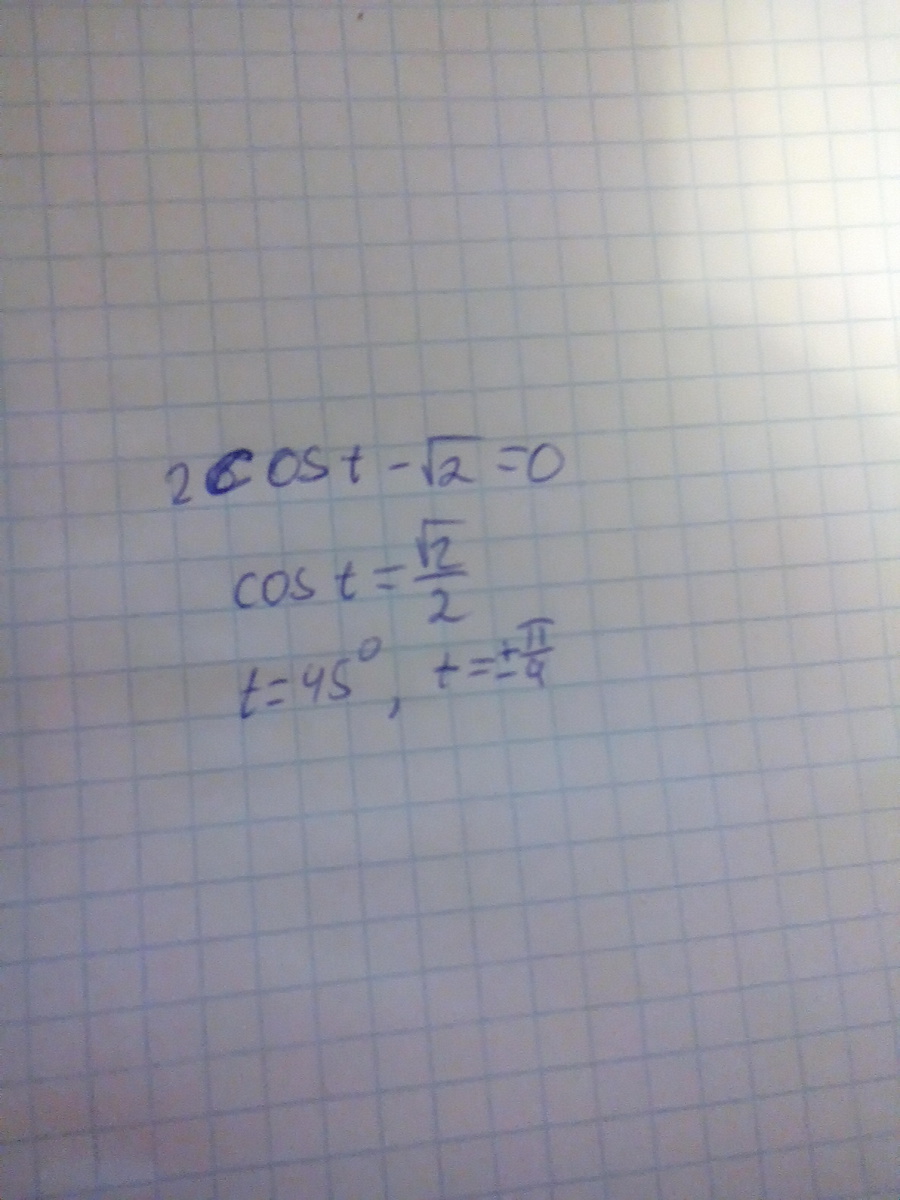 2cos t - √2 = 0
cos t = √2/2
t = 45°, t = ±π/4